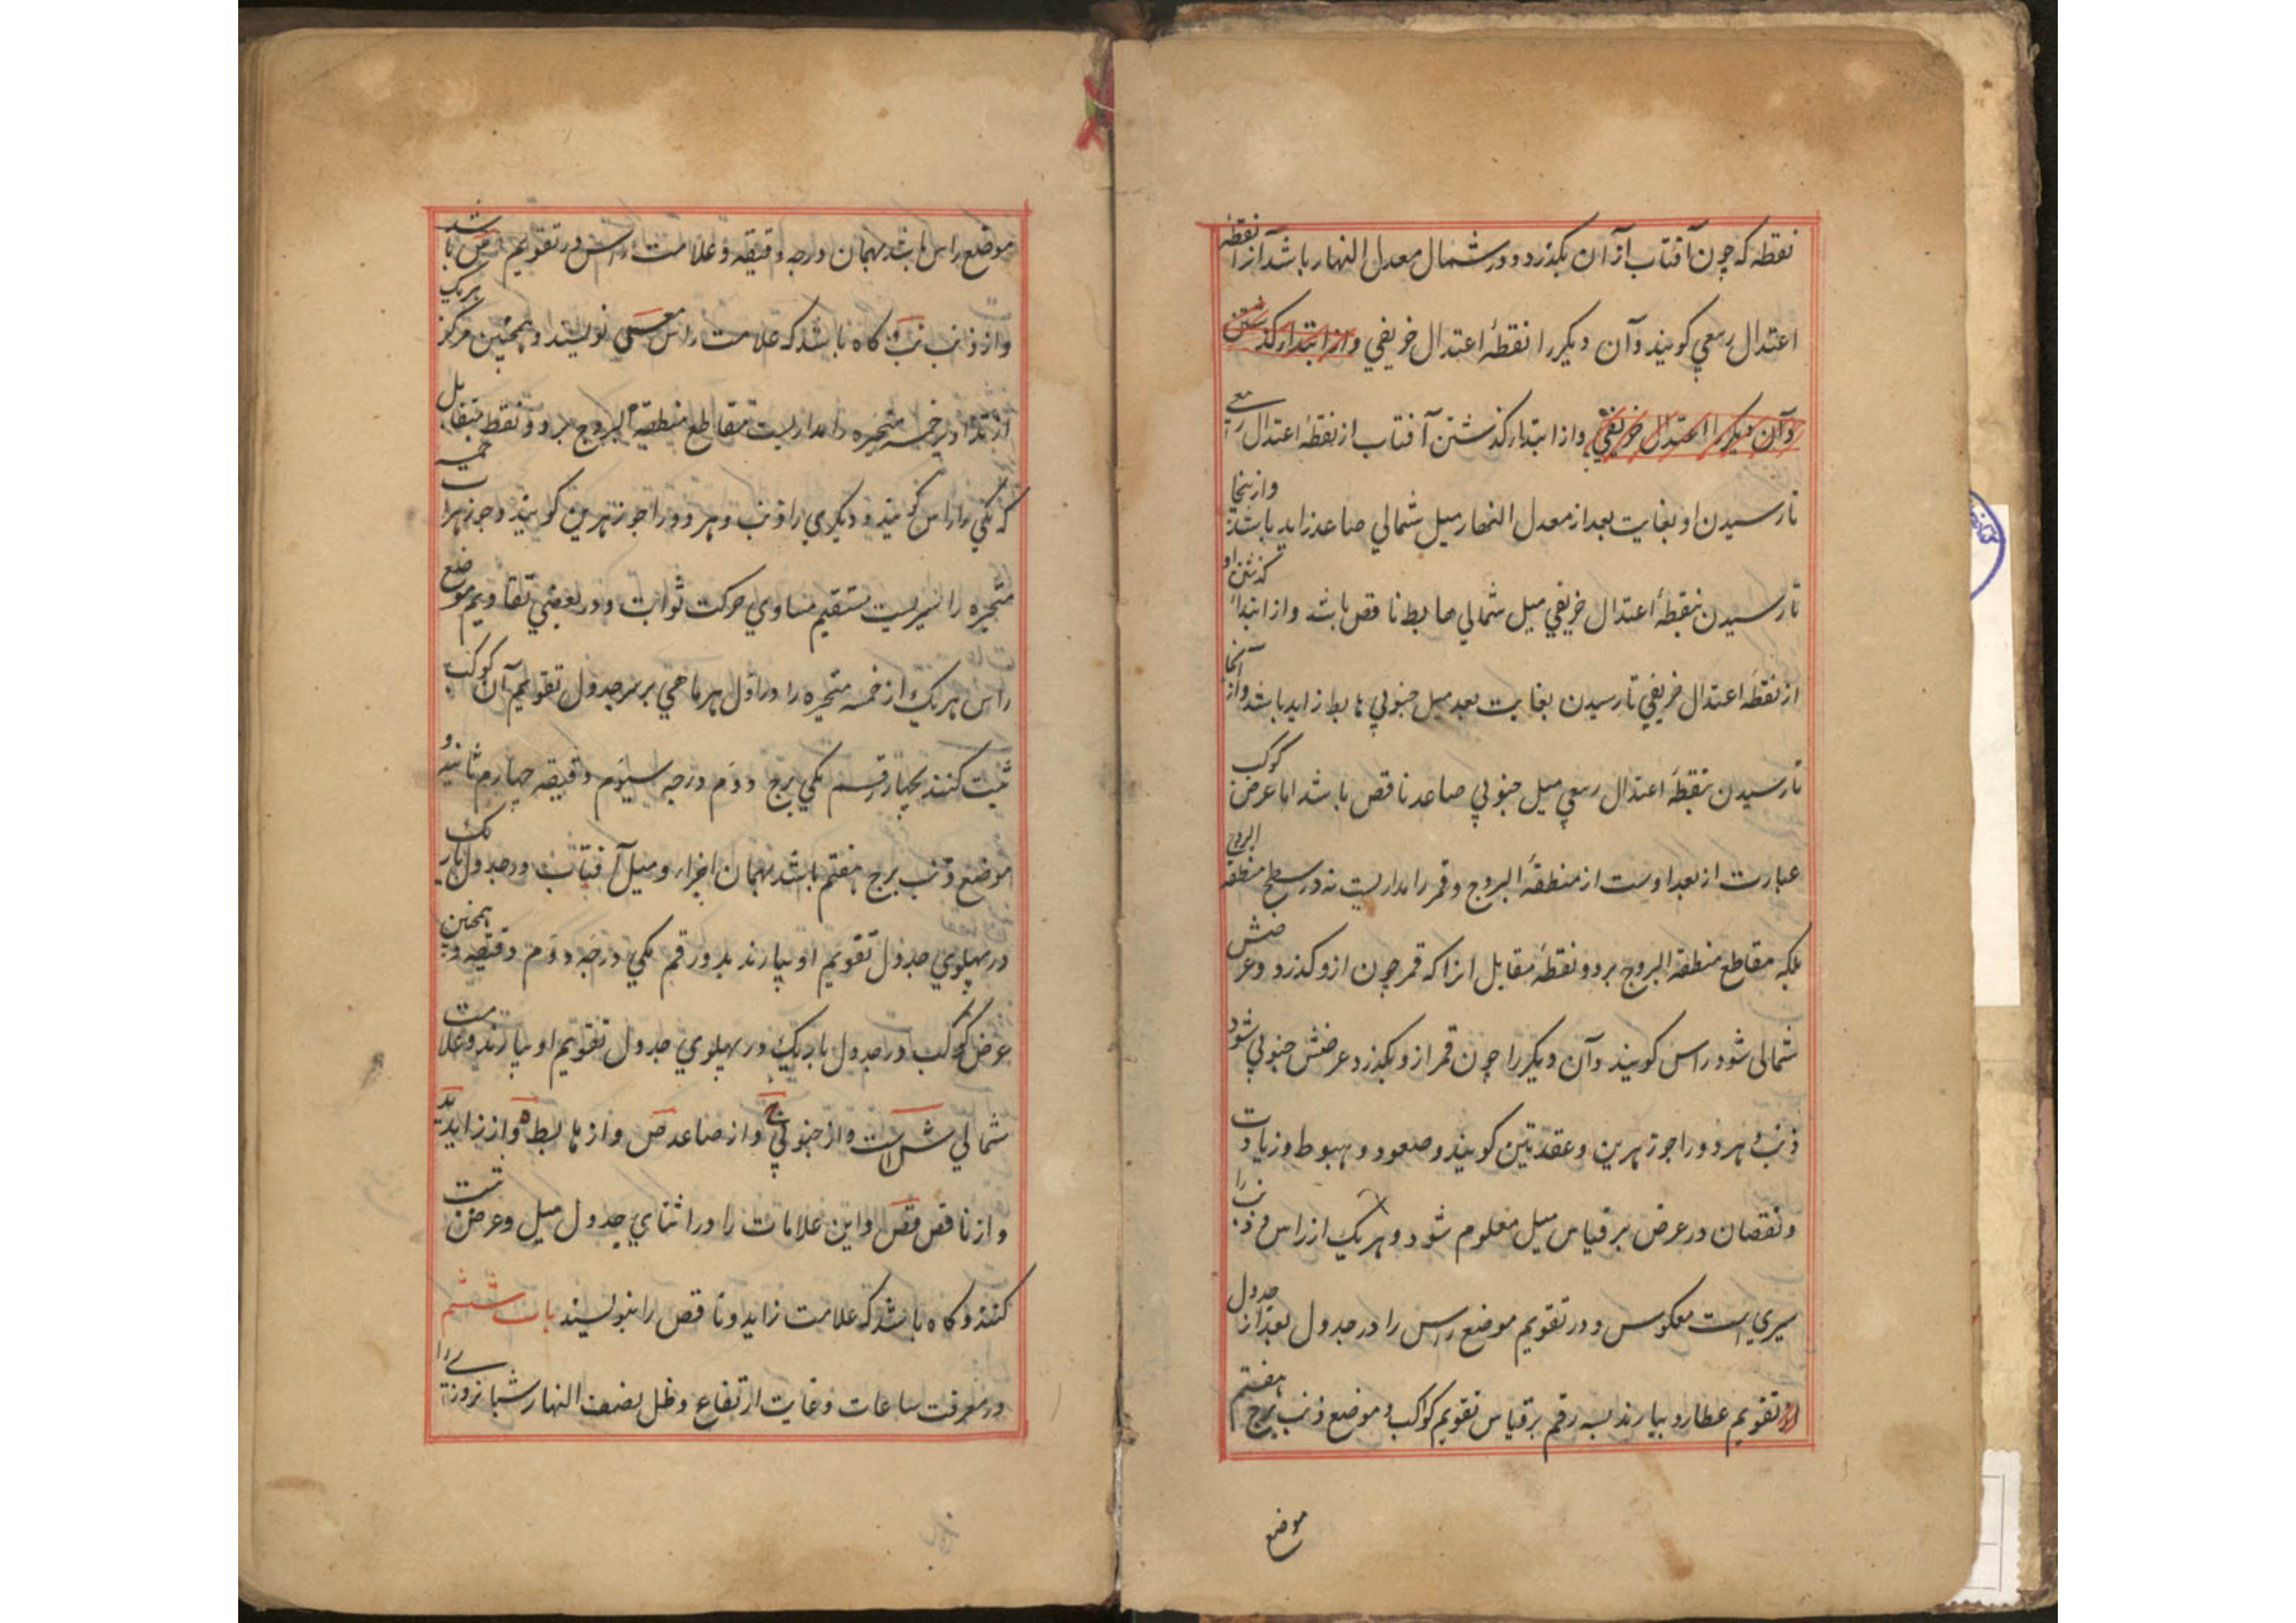 نقطه که چون آفتاب از آن بکذرد و در شمال معدل النهار باشد آنرا نقطهٔ
اعتدال ربیعي کویند و آن دیکر را نقطهٔ اعتدال خریفي و از ابتدار کذشتن
و آن دیکر را اعتدال خریفي و از ابتدار کذشتن آفتاب از نقطهٔ اعتدال ربیعے
تا رسیدن او بغایت بعد از معدل النهار میل شمالي صاعد زاید باشد و ازینجا
تا رسیدن بنقطهٔ اعتدال خریفي میل شمالي هابط ناقص باشد و از ابتداء کذشتن او
از نقطهٔ اعتدال خریفي تا رسیدن بغایت بعد میل جنوبي هابط زاید باشد و از آنجا
تا رسیدن بنقطهٔ اعتدال ربیعي میل جنوبي صاعد ناقص باشد اما عرض کوکب
عبارت از بعد اوست از منطقهٔ البروج و قمر را مداریست نه در سطح منطقه البروج
بلکه مقاطع منطقه البروج بر دو نقطهٔ مقابل انرا که قمر چون ازو کذرد و عرضش
شمالی شود راس کویند و آن دیکر را چون قمر ازو بکذرد عرضش جنوبي شود
ذنب و هر دو را جوزهرین و عقدتین کویند و صعود و هبوط و زیادت
و نقصان در عرض بر قیاس میل معلوم شود و هر یک از راس و ذنب را
سیري است معکوس و در تقویم موضع راس را در جدول بعد از جدول
تقویم عطارد بیارند بسه رقم بر قیاس تقویم کواکب و موضع ذنب برج هفتم
موضع
موضع راس باشد بهمان درجه و دقیقه و علامت راس در تقویم س باشد
و از ذنب نب و کاه باشد که علامت راس نویسند و همچنین مرکز هر یک
از تداویر خمسه متحیره را مداریست مقاطع منطقة البروج بر دو نقط متقابل
که یکي را راس کویند و دیکري را ذنب و هر دو را جوزهرین کویند و جوزهرات خمسه
متحیره را سیریست مستقیم مساوي حرکت ثوابت و در بعضي تقاویم موضع
راس هر یک از خمسه متحیره را در اول هر ماهي بر سر جدول تقویم آن کوکب
ثبت کنند بچهار رقم یکي برج دوم درجه سیوم دقیقه چهارم ثانیه و
موضع ذنب برج هفتم باشد بهمان اجزار و میل آفتاب در جدول باریک
در پهلوي جدول تقویم او بیارند بدو رقم یکي درجه دوم دقیقه و همچنین
عرض کوکب در جدول باریک در پهلوي جدول تقویم او بیارند و علامت
شمالي ش است و از جنوبي ج و از صاعد ص و از هابط ه و از زاید ید
و از ناقص قص و این علامات را در اثناي جدول میل و عرض ثبت
کنند و کاه باشد که علامت زاید و ناقص را بنویسند باب ششم
در معرفت ساعات و غایت ارتفاع و ظل نصف النهار شبانروزے را